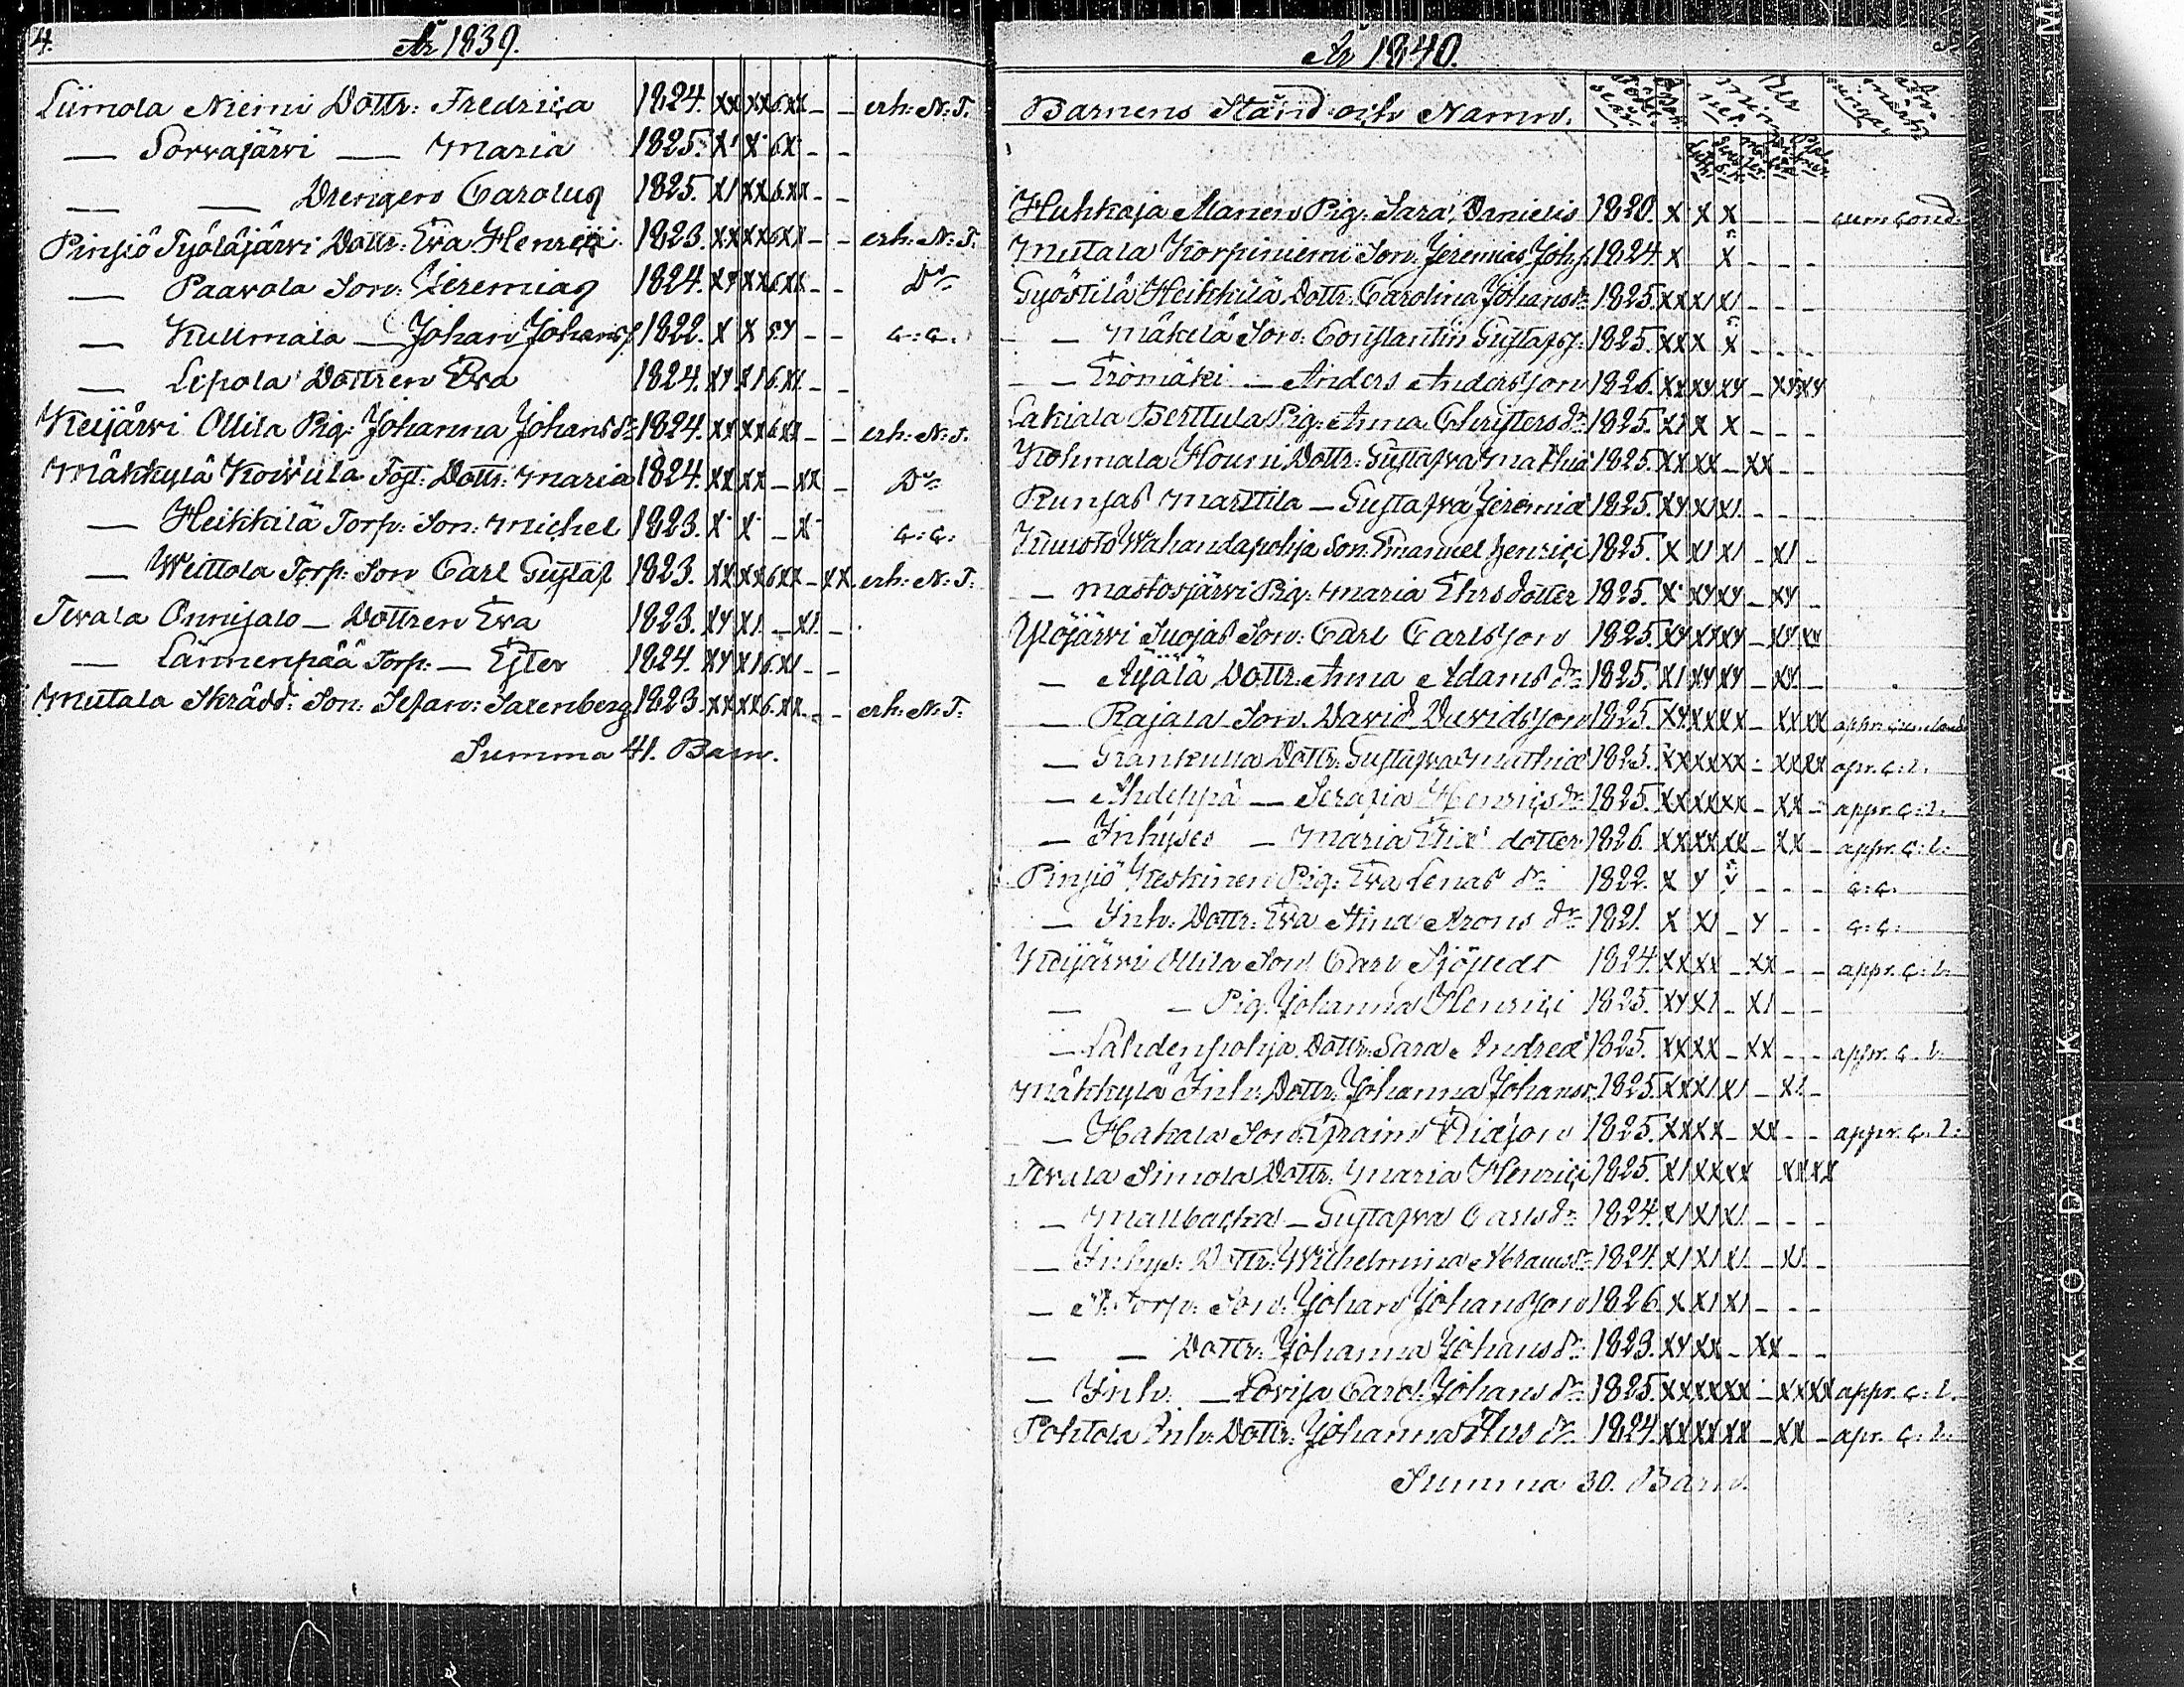 4.
År 1839.
Liimola Niemi Dottr: Fredrica 1824. xx xx 6xx - - erh: N: T.
— Sorvajärvi — Maria 1825. x' x· 6x· - -
— — Drengen Carolus 1825. x1 xx 6.xx - -
Pinsiö Työläjärvi Dottr: Eva Henrici 1823. xx xx 6xx - - erh: N: T.
— Paavola Son: Jeremias 1824. xy xx 6xx - - Do
— Kullmala — Johan Johans 1822. x x 5.y - - c: c.
— Lepola Dottren Eva 1824. xy x1 6.x1. - -
Keijärvi Ollila Pig: Johanna Johans dr 1824. xx xx 6xx - - erh: N: T.
Mäkkylä Koivula Dottr: Maria 1824. xx xx - xx - Do
— Heikkilä Torp: Son: Michel 1823. x· x· - x· c: c.
— Torp: Son Carl Gustaf 1823. xx xx 6xx - xx. erh: N: T:
Tevala Onnisalo — Dottren Eva 1823. xy x1. - x1. -
— Lännenpää Torp: — Ester 1824. xy x1 6.x1 - -
Mutala Skrädd: Son: Stefan: Saxenberg 1823. xx xx 6.xx - - erh: N: T:
Summa 41. Barn.
År 1840.
Barnens Stånd och Namn.
Huhkaja Manen Pig: Sara Danielis 1820. x x x - - - cum cond:
Mutala Korpiniemi Son: Jeremias Joh 1824 x x - - -
Gyöstilä Heikkilä Dottr: Carolina Johans dr 1825. xx x1 x1 - - -
— Mäkelä Son: Constantin Gustafs 1825. xx x x - - -
— Eromäki — Anders Andersson 1826. xx xy xy - xy xy
Lakiala Berttula Pig: Anna Christers dr 1825. x1 x x - - -
Kohmala Houni Dottr: Gustafva Mathiæ 1825. xx xx - xx - -
Runsas Marttila — Gustafva Jeremiæ 1825. xy x1 x1. - - -
Wahandapohja Son: Emanuel Henrici 1825. x x1 x1 - x1 -
— Mastosjärvi Pig: Maria Ehrs dotter 1825. x· xy xy - xy -
Ylöjärvi Suojas Son: Carl Carlsson 1825. xy xx xy - xx xx
— Äijälä Dottr: Anna Adams dr 1825. x1 xy xy - xy. -
— Rajala Son. David Davidsson 1825. xy. xx xx - xx xx appr. cum laude
— Grankulla Dottr: Gustafva Mathiæ 1825. xx xx xx - xx xx apr. c: l.
— Ahdeppä — Serafia Henrics dr 1825. xx xx xx - xx - appr. c: l.
— Inhyses — Maria dotter 1826. xx xx xx - xx - appr. c: l:
Pinsiö Keskinen Pig: Eva Lenas dr 1822. x y v - - - c: c.
— Inh: Dottr: Eva Stina Arons dr 1821. x x1 - y - - c: c:
Keijärvi Ollila Son Carl Sjöstedt 1824. xx xx - xx - - appr. c: l.
— — Pig: Johanna Henrici 1825. xy x1 - x1 - -
— Lahdenpohja Dottr: Sara Andreæ 1825. xx xx - xx - - appr. c. l.
Mäkkylä Inh: Dottr: Johanna Johans. 1825. xx x1 x1 - x1. -
— Hakala Son: 1825. xx xx - xx - - appr. c. l:
Tevala Simola Dottr: Maria Henrici 1825. x1 xx xx xx xx
— Mallbacka — Gustafva Carls dr 1824. x1 x1 x1. - - -
— Inhys: Dottr: Wilhelmina Abrams dr 1824. x1 x1 x1. - x1. -
— Torp: Son: Johan Johansson 1826. x x1 x1 - - -
— — Dottr: Johanna Johans dr 1823. xy xx - xx - -
— Inh: — Lovisa Carol: Johans dr 1825. xx xx xx - xx xx appr. c: l.
Pohtola Inh: Dottr: Johanna dr 1824. xx xx xx - xx - apr. c. l.
Summa 30. Barn.
KODAK SAFETY FILM